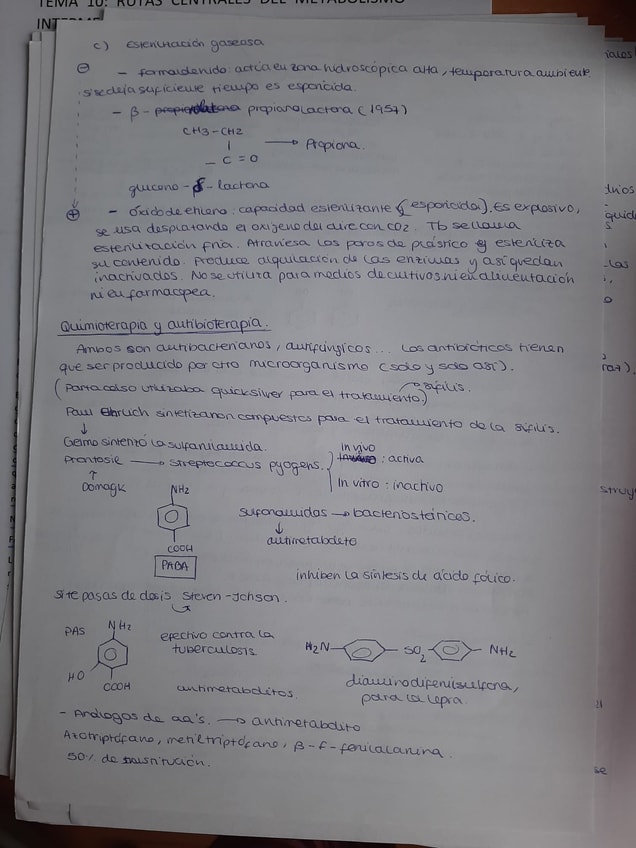 TEMA 10: RUTAS CENTRALES DEL METABOLISMO
c) esterilización gaseosa
⊖ - formaldehido: actúa en zona hidroscópica alta, temperatura ambiente
si se deja suficiente tiempo es esporicida.
- β - propiano lactona (1957)
CH3-CH2
- C = O → Propiona.
glucono - δ - lactona
⊕ - óxido de etileno: capacidad esterilizante (esporicida). Es explosivo,
se usa desplatando el oxígeno del aire con CO2. Tb se llama
esterilización fría. Atraviesa los poros de plástico y esteriliza
su contenido. Produce alquilación de las enzimas y así quedan
inactivados. No se utiliza para medios de cultivos ni en alimentación
ni en farmacopea.
Quimioterapia y antibioterapia.
Ambos son antibacterianos, antifúngicos... Los antibióticos tienen
que ser producido por otro microorganismo (solo y solo así).
(Paracalso utilizaba quicksilver para el tratamiento) → sífilis.
Paul Ehrlich sintetizaron compuestos para el tratamiento de la sífilis.
↓
Gelmo sintentizó la sulfanilamida.
Prontosil → streptococcus pyogens.
in vivo : activa
In vitro : inactivo
↑
Domagk
NH2
COOH
PABA
sulfonamidas → bacteriostáticos.
↓
antimetabolito
inhiben la síntesis de ácido fólico.
si te pasas de dosis Steven-Johson.
PAS
NH2
HO
COOH
efectivo contra la
tuberculosis
antimetabolitos.
H2N- -SO2- -NH2
diaminodifenilsulfona,
para la lepra.
- Análogos de aa's. → antimetabolito
Azotriptófano, metiltriptófano, β-f-fenilalanina.
50% de sustitución.